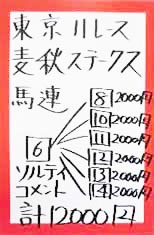 東京11レース
麦秋ステークス
馬連
6
8 2000円
10 2000円
11 2000円
12 2000円
13 2000円
14 2000円
ソルティ
コメント
計12000円